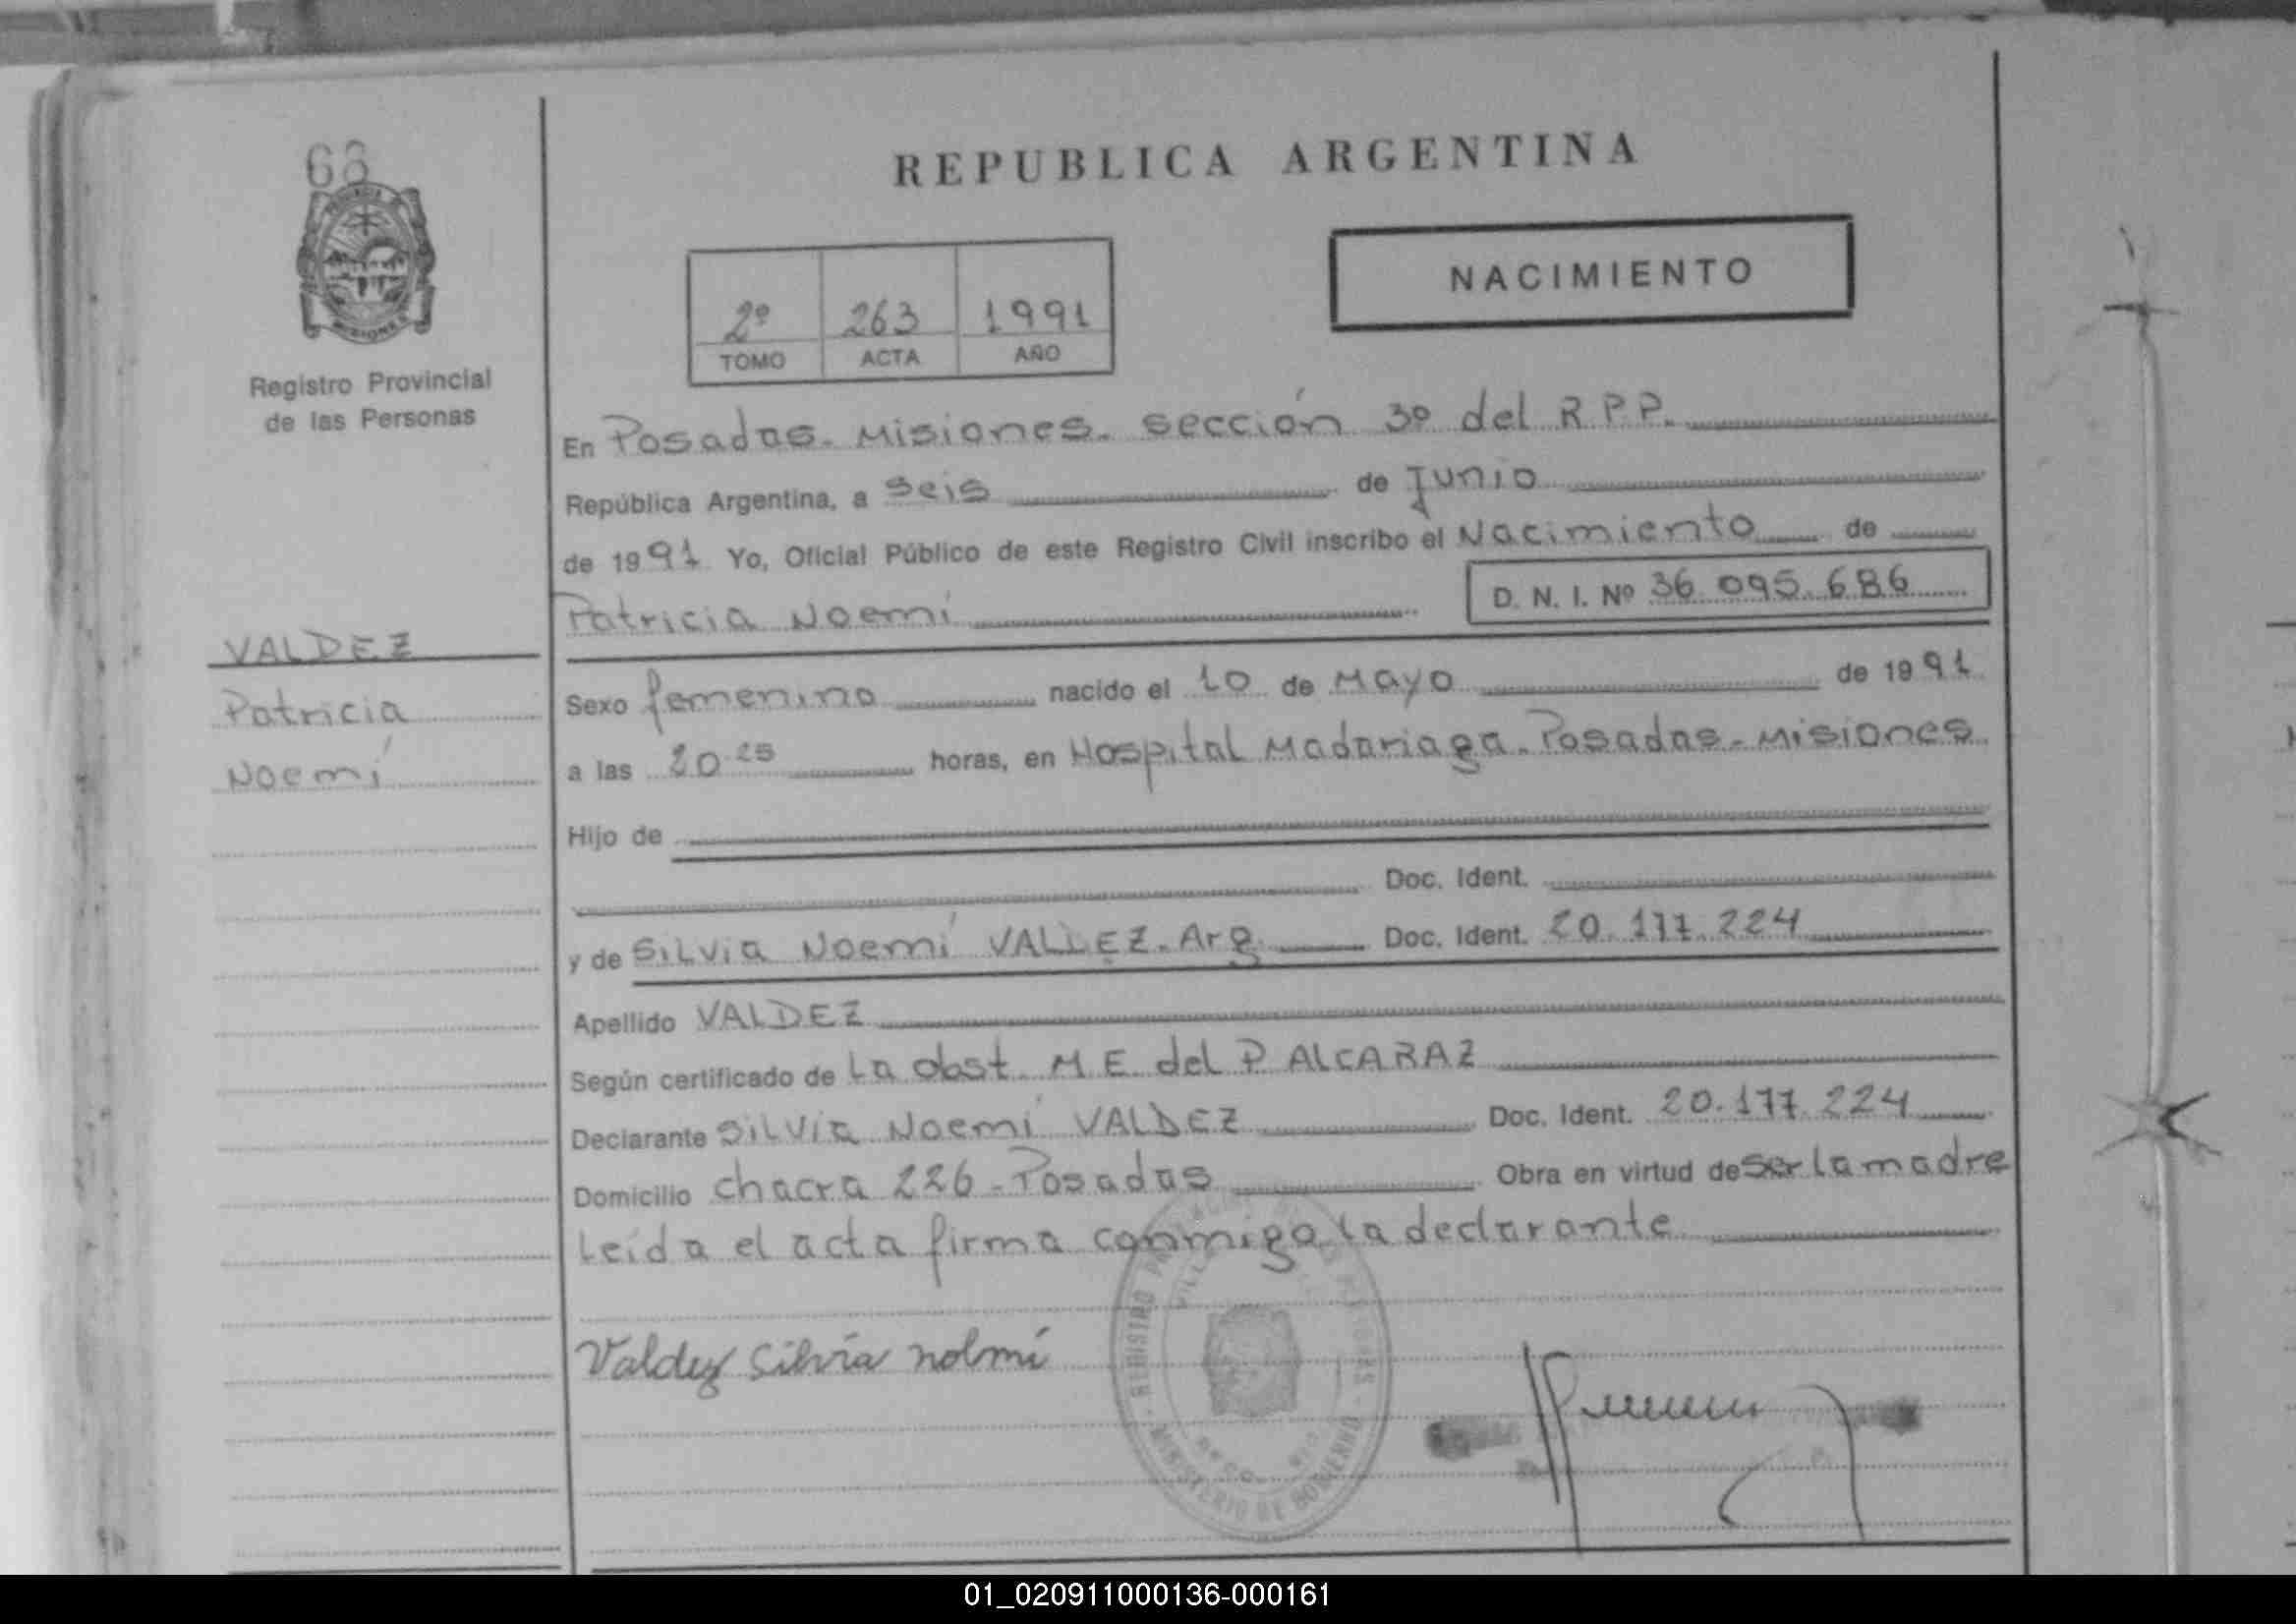 68
Registro Provincial
de las Personas
VALDEZ
Patricia
Noemí
REPUBLICA ARGENTINA
2º 263 1991
TOMO ACTA AÑO
NACIMIENTO
En Posadas - Misiones - sección 3º del R.P.P.
República Argentina, a seis de Junio
de 1991 Yo, Oficial Público de este Registro Civil inscribo el Nacimiento de
Patricia Noemí D. N. I. Nº 36.095.686
Sexo femenino nacido el 10 de Mayo de 1991
a las 20.25 horas, en Hospital Madariaga - Posadas - Misiones
Hijo de
Doc. Ident.
y de Silvia Noemí VALLEZ - Arg Doc. Ident. 20.177.224
Apellido VALDEZ
Según certificado de La obst. M. E. del P. ALCARAZ
Declarante Silvia Noemí VALDEZ Doc. Ident. 20.177.224
Domicilio chacra 226 - Posadas Obra en virtud de ser la madre
Leída el acta firma conmigo la declarante
Valdez Silvia Noemí
MINISTERIO DE GOBIERNO
01_020911000136-000161